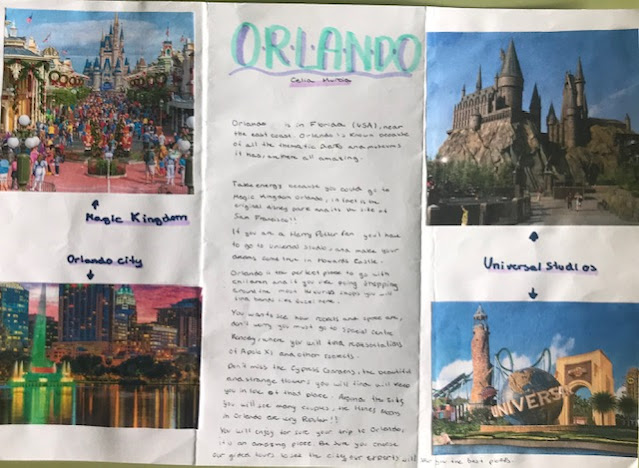 Magic Kingdom
Orlando City
ORLANDO
Celia
Orlando is in Florida (USA), near
the east coast. Orlando is known because
of all the thematic parks and museums
it has, are all amazing.
Take energy because you could go to
Magic Kingdom Orlando, in fact is the
original park and its the
San Francisco!!
If you are a Harry Potter fan you'll have
to go to Universal Studio, and make your
dreams come true in Howards Castle.
Orlando is the perfect place to go with
children and if you like doing shopping
around the most favourite shops you will
find
You wants see how rockets and space are,
don't worry you must go to Special Centre
Kennedy, where you will find representations
of Apolo XI and other rockets.
Don't miss the Cypress Gardens, the beautiful
and strange flowers you will find will keep
you in love of that place. Around the city
you will see many couples, the
in Orlando are very Popular!!
You will enjoy for sure your trip to Orlando,
it's an amazing place. Be sure you choose
our guied tours to see the city our experts will show you the best parts.
Universal Studios
UNIVERSAL